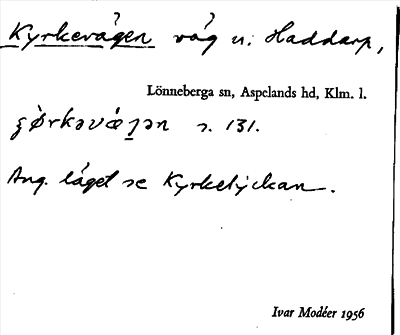 Kyrkevägen väg n. Haddarp,
Lönneberga sn, Aspelands hd, Klm. l.
s. 131.
Ang. läget se Kyrketyckan.
Ivar Modéer 1956